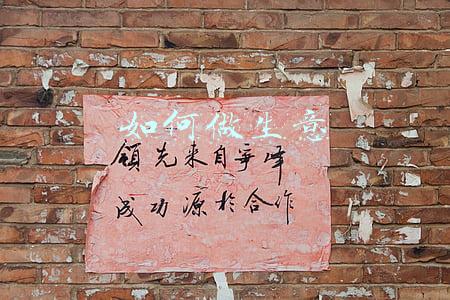 如何做生意
领先来自爭峰
成功源於合作